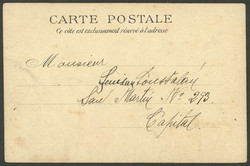 CARTE POSTALE
Ce côté est exclusivement réservé à l'adresse
Monsieur
San Martin Nº 293
Capital